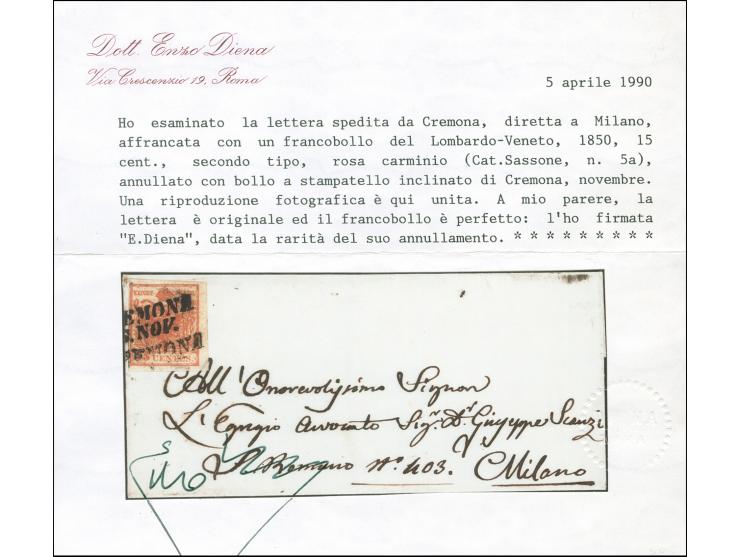 Dott. Enzo Diena
Via Crescenzio 19, Roma
5 aprile 1990
Ho esaminato la lettera spedita da Cremona, diretta a Milano,
affrancata con un francobollo del Lombardo-Veneto, 1850, 15
cent., secondo tipo, rosa carminio (Cat.Sassone, n. 5a),
annullato con bollo a stampatello inclinato di Cremona, novembre.
Una riproduzione fotografica è qui unita. A mio parere, la
lettera è originale ed il francobollo è perfetto: l'ho firmata
"E.Diena", data la rarità del suo annullamento. * * * * * * * * *
EMONA
NOV.
EMONA
CENTES.
All' Onorevolissimo Signor
L'Egregio Avvocato Sigr. Dr. Giuseppe
No. 403. Milano